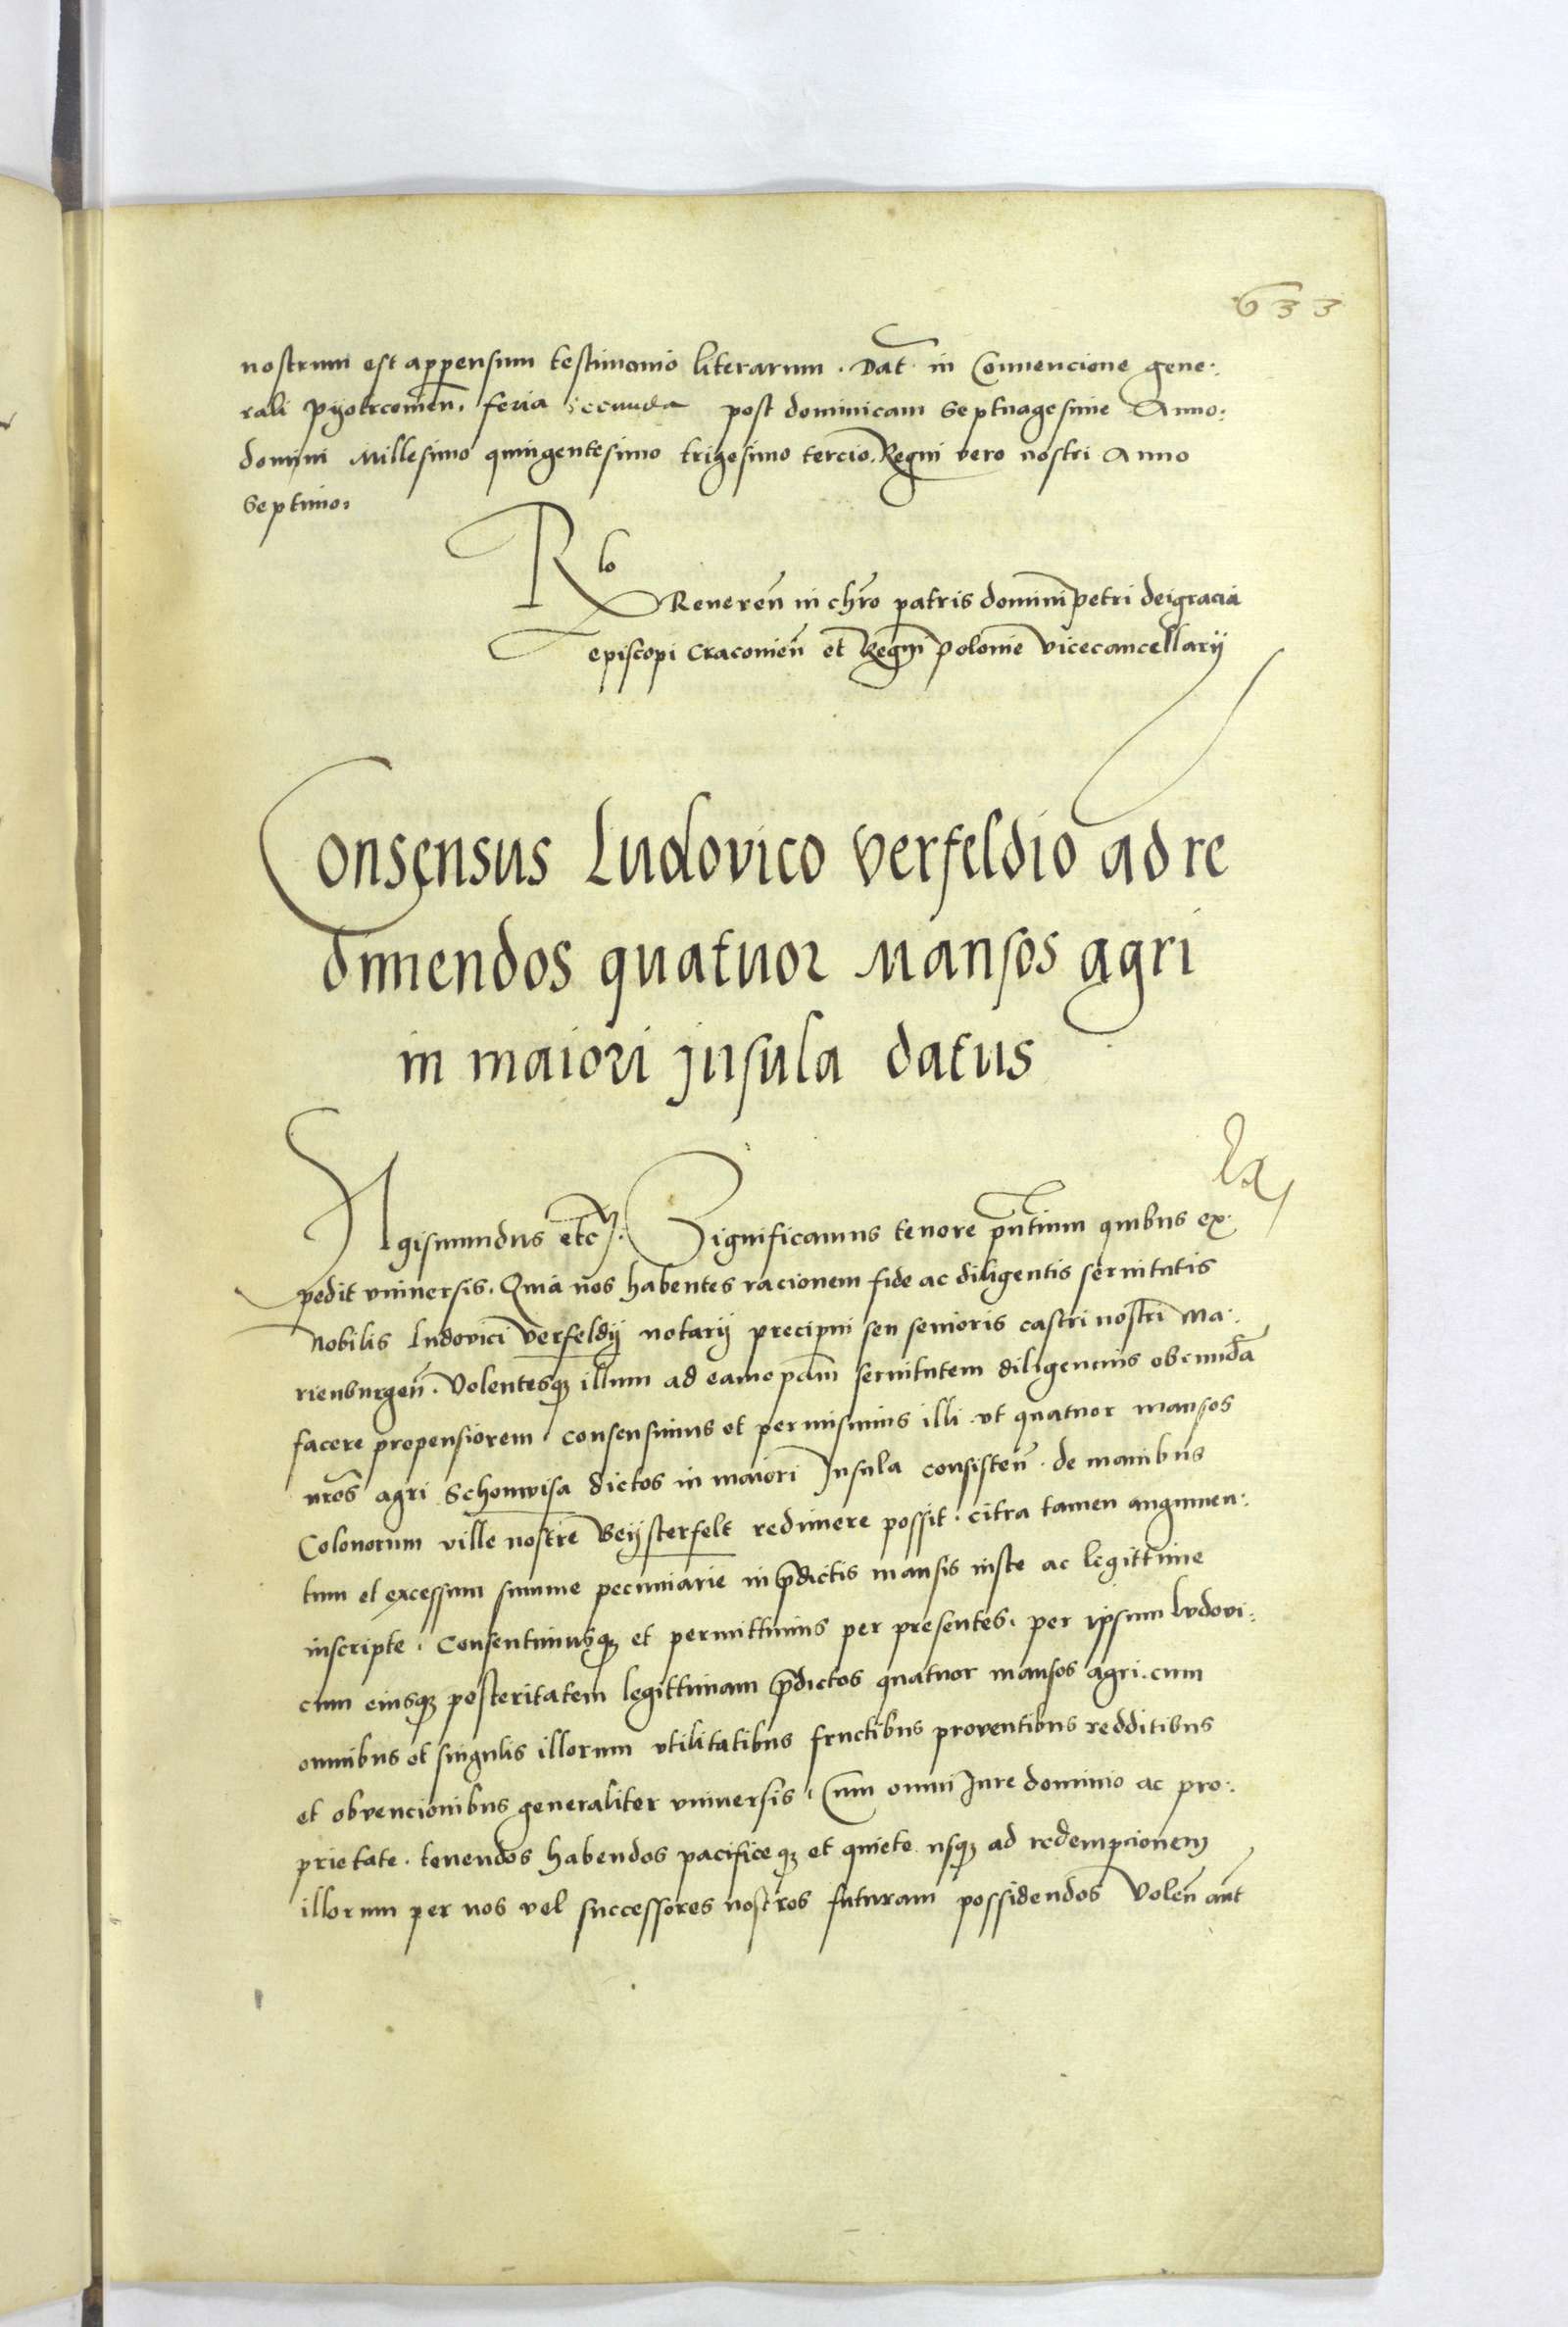 633
nostrum est appensum testimonio literarum. Dat̄ in Convencione gene:
rali Pyotrcovien̄. feria secunda post dominicam Septuagesime Anno:
domini Millesimo quingentesimo trigesimo tercio. Regni vero nostri Anno
Septimo.
Rlo
Reveren̄ in chr̄o patris domini Petri dei gracia
episcopi Cracovien̄ et Regni Polonie Vicecancellarij
Consensus Ludovico Verfeldio ad re
dimendos quatuor Mansos agri
in maiori Jnsula datus
Sigismundus etc. Significamus tenore pn̄tium quibus ex:
pedit vniversis. Quia nos habentes racionem fide ac diligentis servitutis
Nobilis Ludovici Verfeldij notarij precipui seu senioris castri nostri Ma:
rienburgen̄. Volentesqꝫ illum ad eam op̄am servitutem diligencius obeundā
facere propensiorem. consensimus et permisimus illi vt quatuor mansos
nr̄os agri Schonwisa dictos in maiori Jnsula consisten̄. de manibus
Colonorum ville nostre Beysterfelt redimere possit. citra tamen augumen:
tum et excessum summe pecuniarie in p̄dictis mansis iuste ac legittime
inscripte. Consentimusqꝫ et permittimus per presentes. per ipsum Ludovi:
cum eiusqꝫ posteritatem legittimam p̄dictos quatuor mansos agri. cum
omnibus et singulis illorum vtilitatibus fructibus proventibus redditibus
et obvencionibus generaliter vniversis. Cum omni Jure dominio ac pro:
prietate. tenendos habendos pacificeqꝫ et quiete usqꝫ ad redempcionem
illorum per nos vel successores nostros futuram possidendos Volen̄ aūt